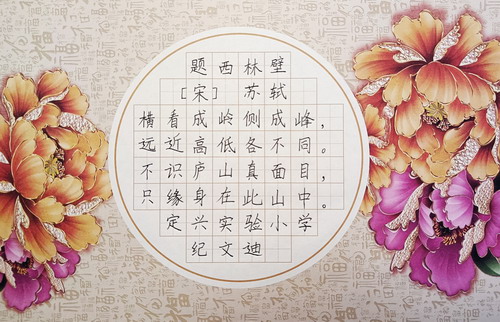 题西林壁
[宋] 苏轼
横看成岭侧成峰，
远近高低各不同。
不识庐山真面目，
只缘身在此山中。
定兴实验小学
纪文迪